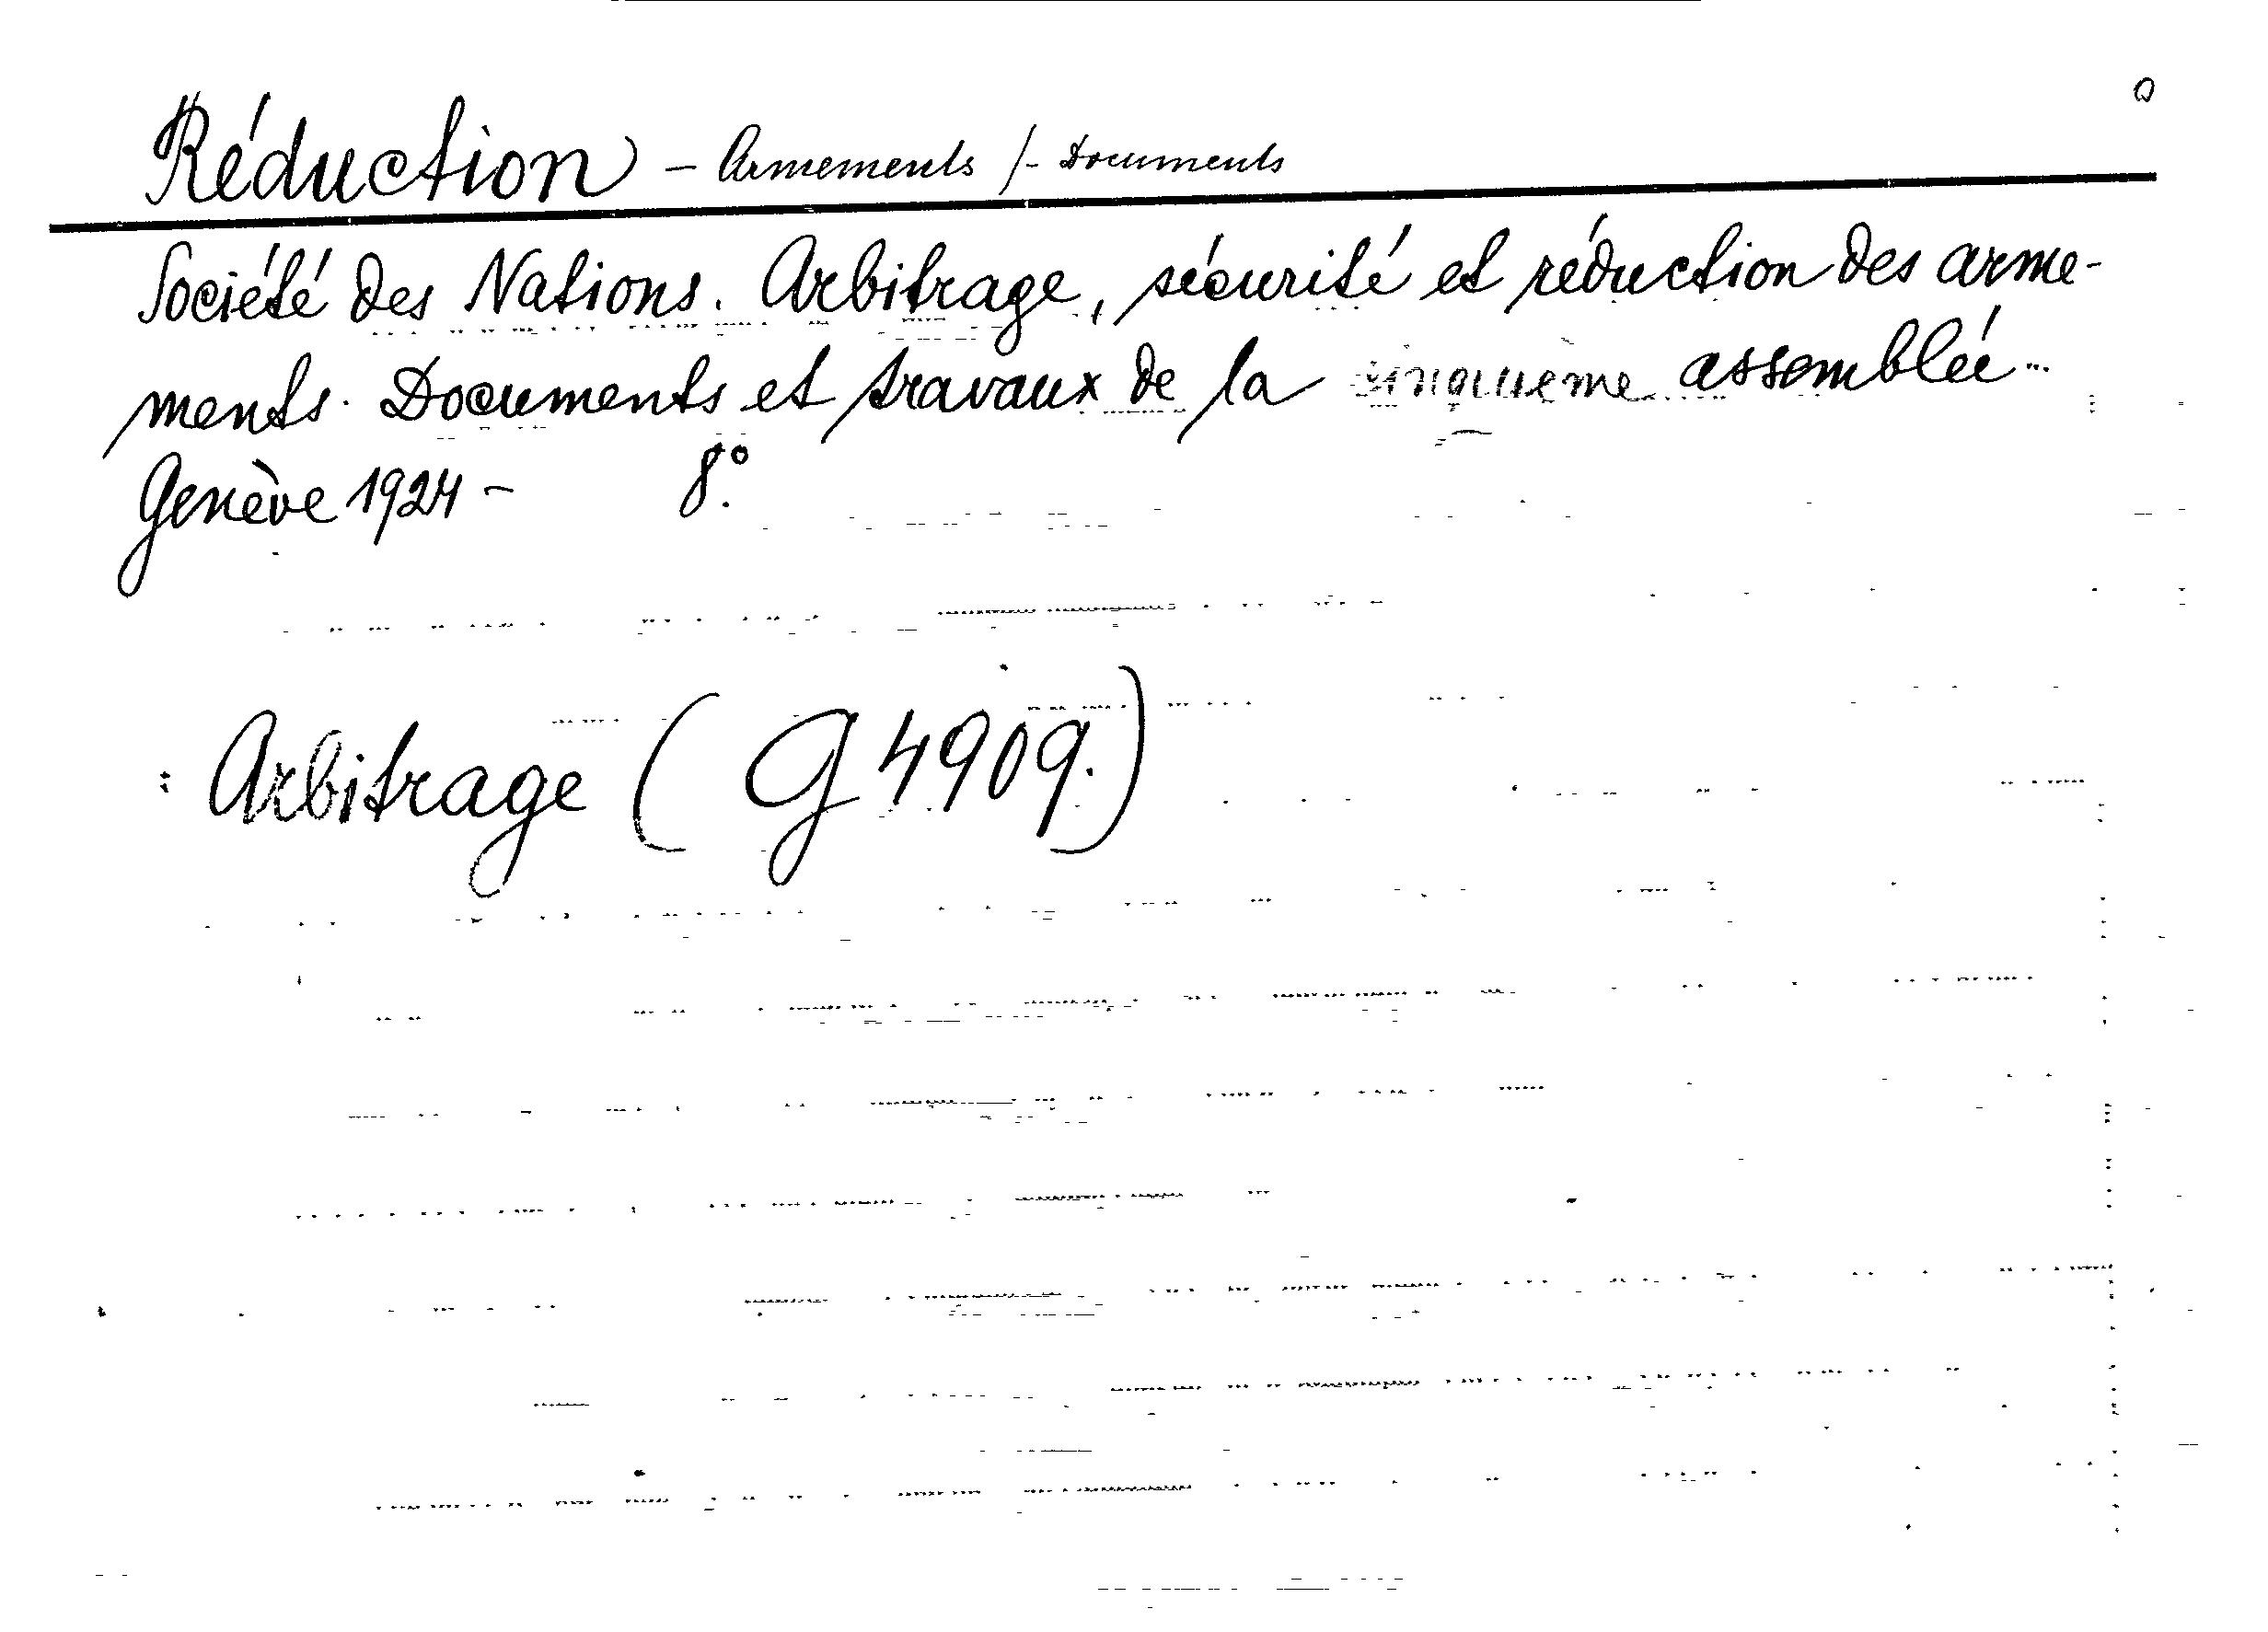 Réduction - Armements /- Documents
Société des Nations. Arbitrage, sécurité et réduction des arme-
ments. Documents et travaux de la cinquième assemblée...
Genève 1924 - 8°.
: Arbitrage ( G 4909.)